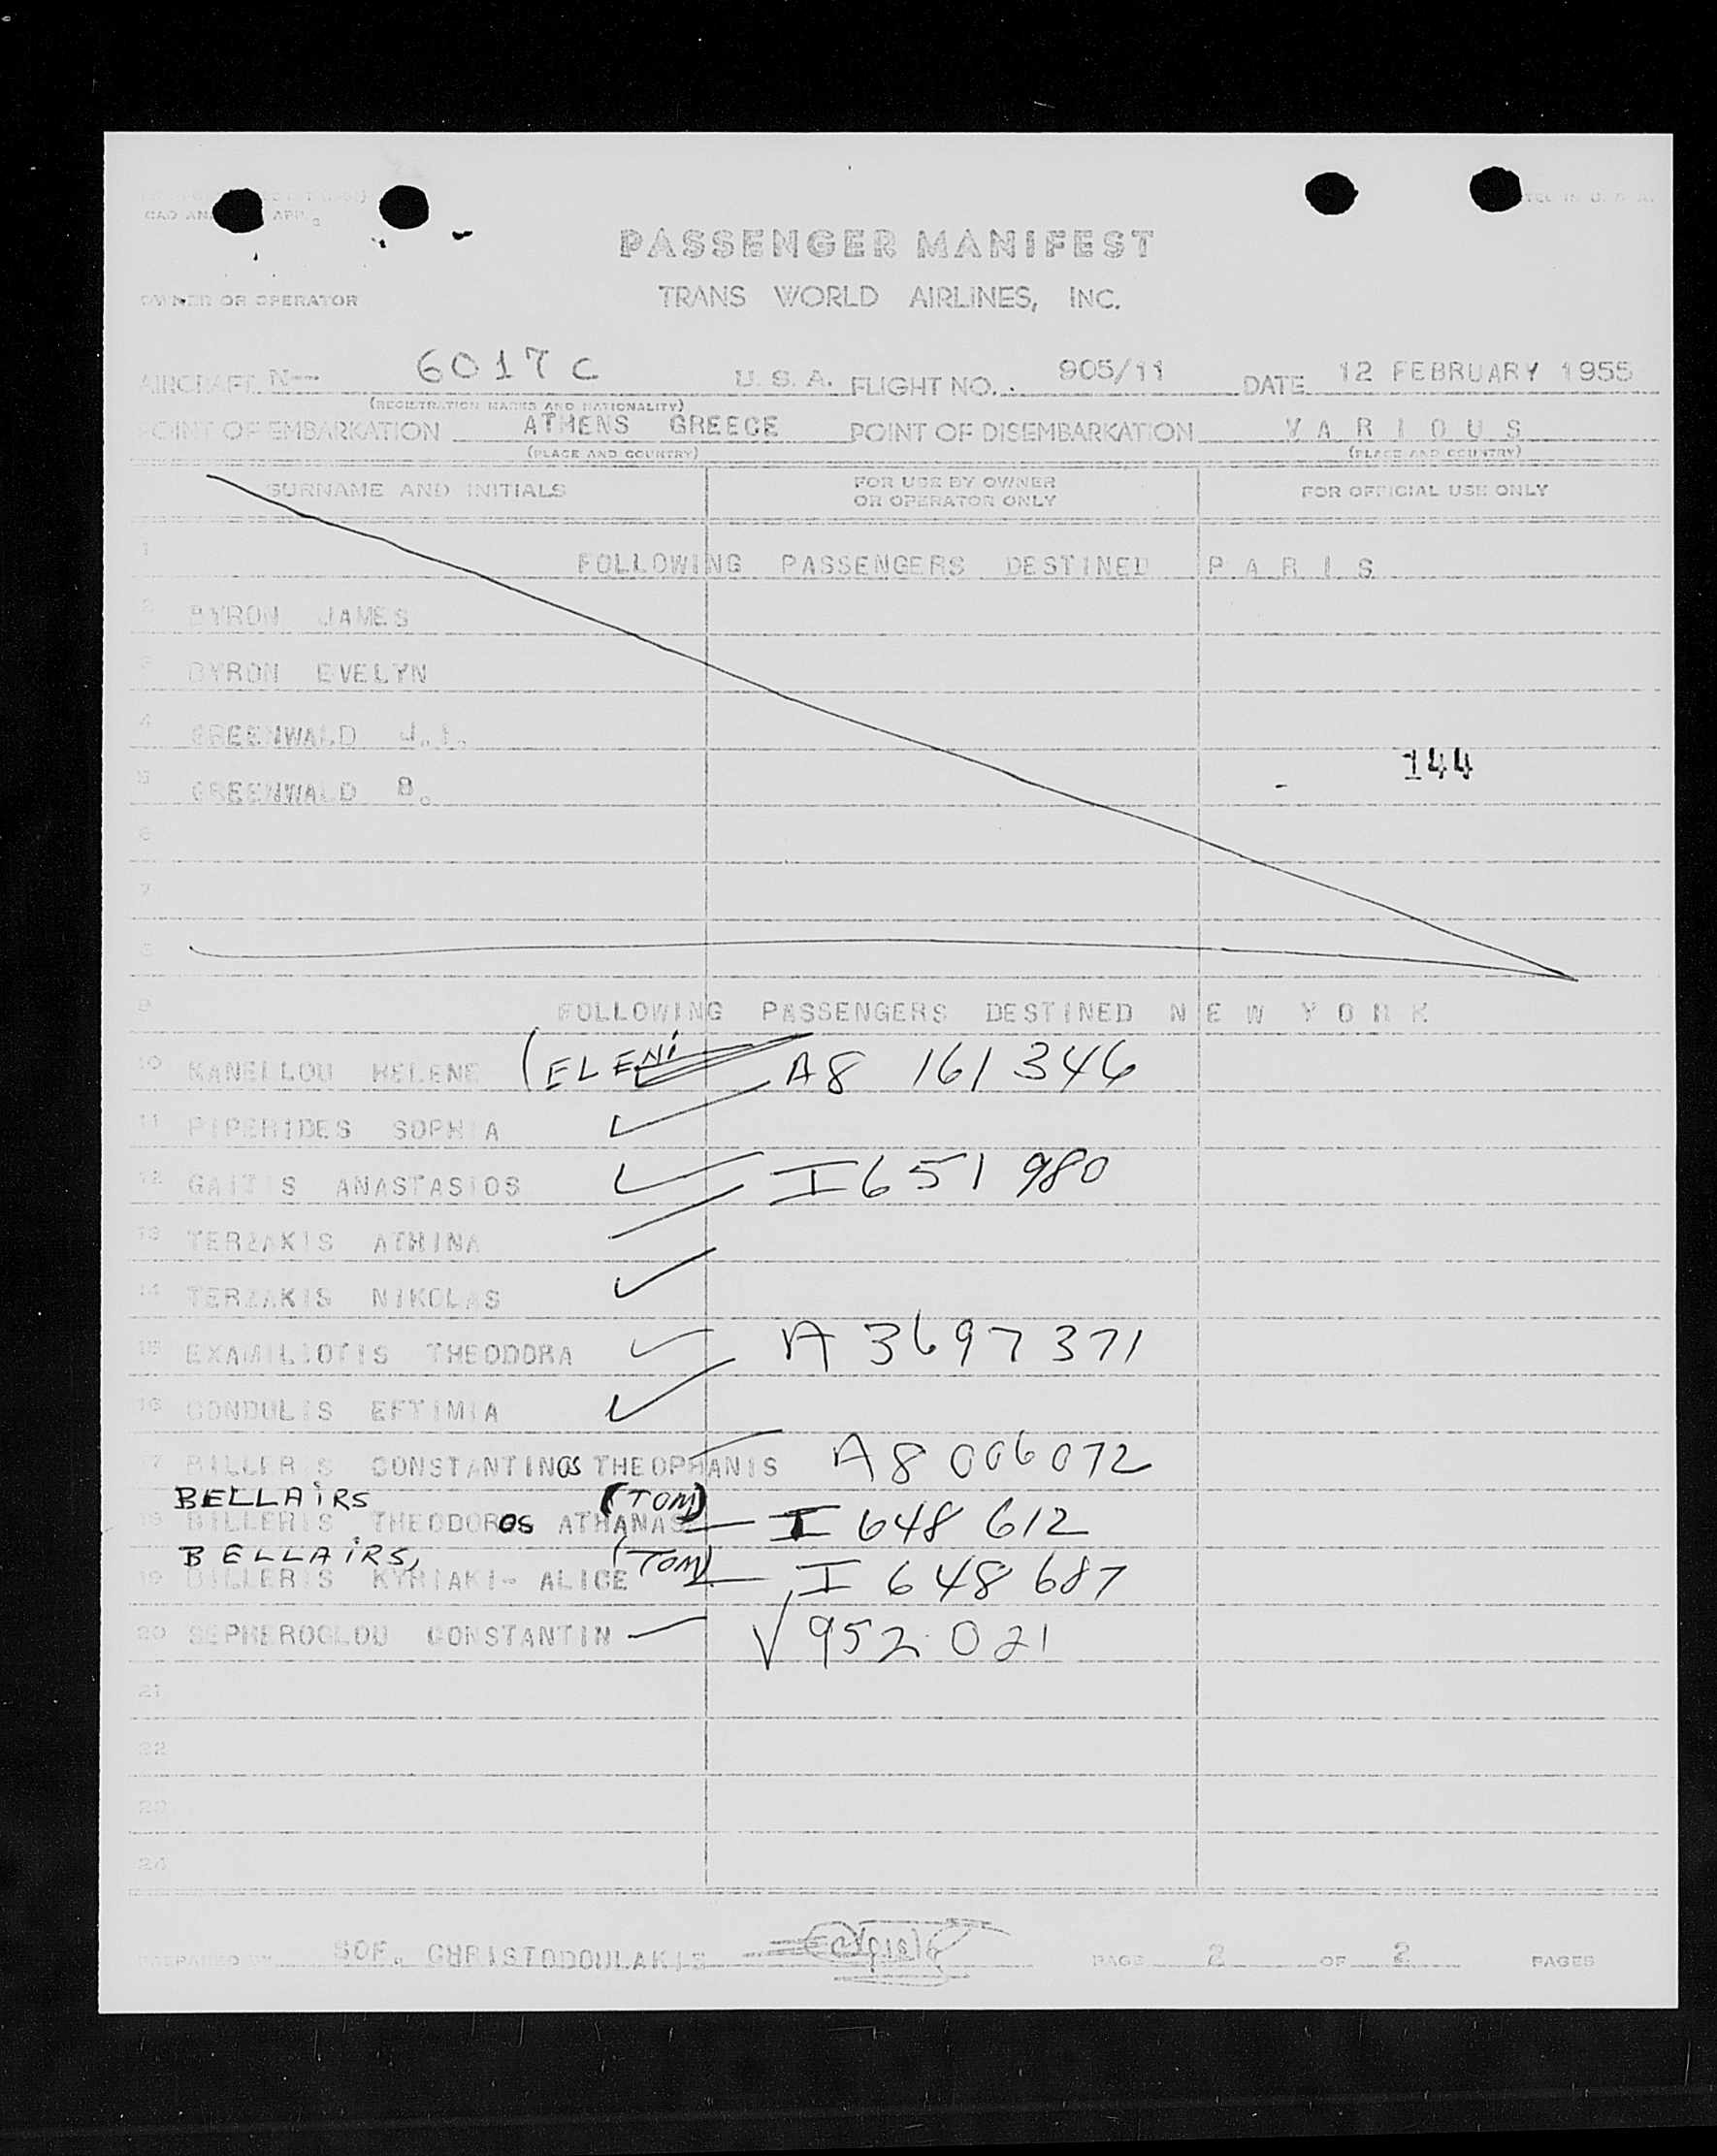 CAO AN APR. 9
PASSENGER MANIFEST
OWNER OR OPERATOR TRANS WORLD AIRLINES, INC.
AIRCRAFT N-- 6017C U. S. A. FLIGHT NO. 905/11 DATE 12 FEBRUARY 1955
(REGISTRATION MARKS AND NATIONALITY)
POINT OF EMBARKATION ATHENS GREECE POINT OF DISEMBARKATION V A R I O U S
(PLACE AND COUNTRY) (PLACE AND COUNTRY)
SURNAME AND INITIALS FOR USE BY OWNER OR OPERATOR ONLY FOR OFFICIAL USE ONLY
1 FOLLOWING PASSENGERS DESTINED P A R I S
2 BYRON JAMES
3 BYRON EVELYN
4 GREENWALD J.I.
144
5 GREENWALD B.
6
7
8
9 FOLLOWING PASSENGERS DESTINED N E W Y O R K
10 KANELLOU HELENE (ELENI A8 161 346
11 PIPERIDES SOPHIA
12 GAITIS ANASTASIOS I 651 980
13 TERZAKIS ATHINA
14 TERZAKIS NIKOLAS
15 EXAMILIOTIS THEODORA A 3697 371
16 GONDULIS EFTIMIA
17 BILLERIS CONSTANTINOS THEOPHANIS A8 006072
BELLAIRS (TOM)
18 BILLERIS THEODOROS ATHANAS I 648 612
BELLAIRS, (TOM)
19 BILLERIS KYRIAKI- ALICE I 648 687
20 SEPHEROGLOU CONSTANTIN √952 021
21
22
23
24
PREPARED BY SOF. CHRISTODOULAKIS PAGE 2 OF 2 PAGES